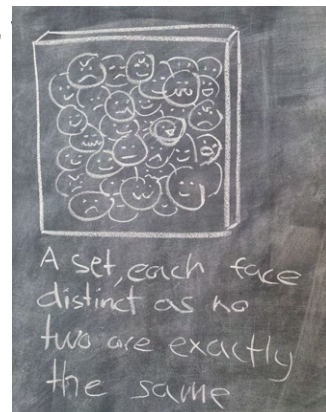 A set, each face
distinct as no
two are exactly
the same